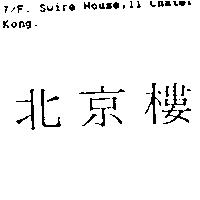 7/F. Swire House, 11 Chater
Kong.
北京樓